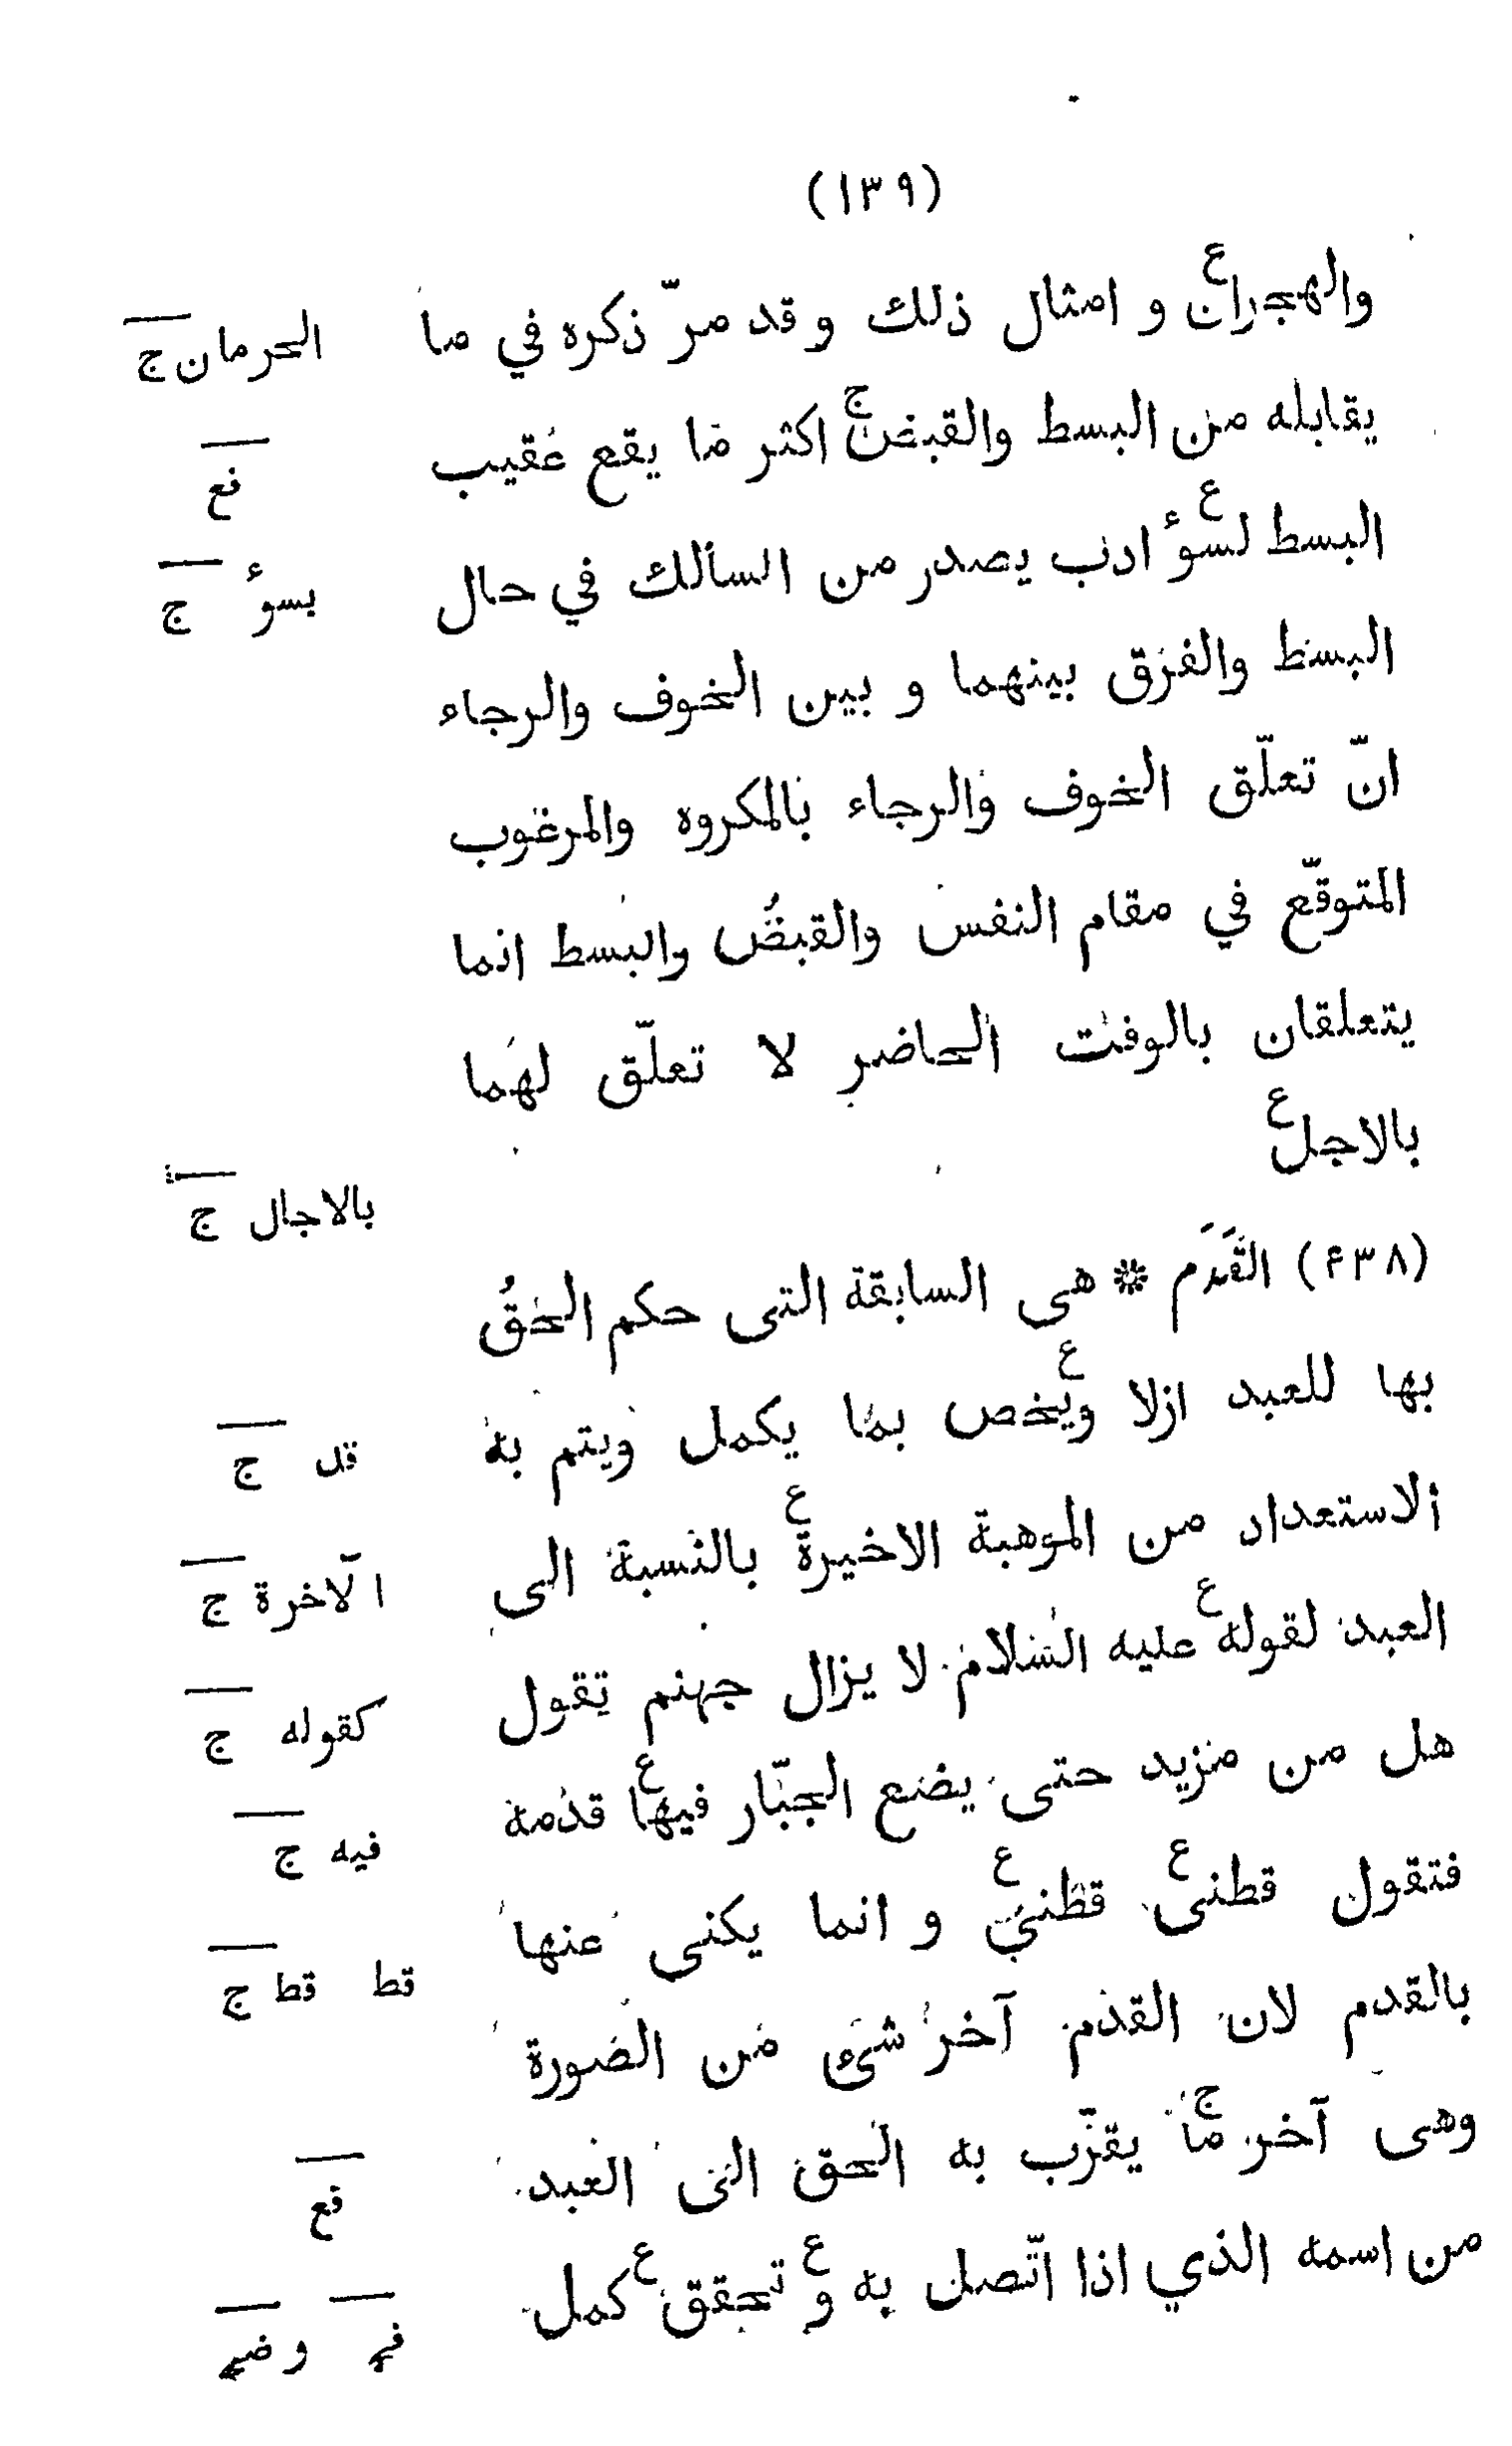 (١٣٩)
والهجران ع و امثال ذلك و قد مرّ ذكره في ما
الحرمان ج
يقابله من البسط والقبض ج اكثر ما يقع عقيب
فع
البسط لسوء ع ادب يصدر من السالك في حال
بسوء ج
البسط والفرق بينهما و بين الخوف والرجاء
انّ تعلّق الخوف والرجاء بالمكروه والمرغوب
المتوقّع في مقام النفس والقبض والبسط انما
يتعلقان بالوقت الحاضر لا تعلّق لهما
بالاجل ع
بالاجال ج
(۴۳۸) القَدَم * هى السابقة التى حكم الحق
بها للعبد ازلا ويخص ع بما يكمل ويتم به
قد ج
الاستعداد من الموهبة الاخيرة ع بالنسبة الى
الآخرة ج
العبد لقوله ع عليه السلام لا يزال جهنم تقول
كقوله ج
هل من مزيد حتى يضع الجبّار فيها ع قدمه
فيه ج
فتقول قطنى ع قطنى ع و انما يكنى عنها
قط قط ج
بالقدم لان القدم آخر شئ من الصورة
وهى آخر ما ج يقرّب به الحق الى العبد
قع
من اسمه الذي اذا اتّصل به و ع تحقق ع كمل